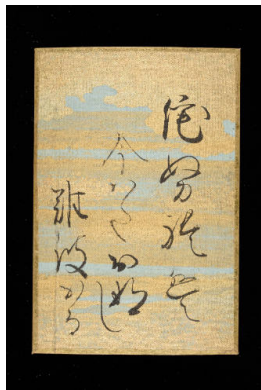 侘ぬれは
今はたおなし
難波なる